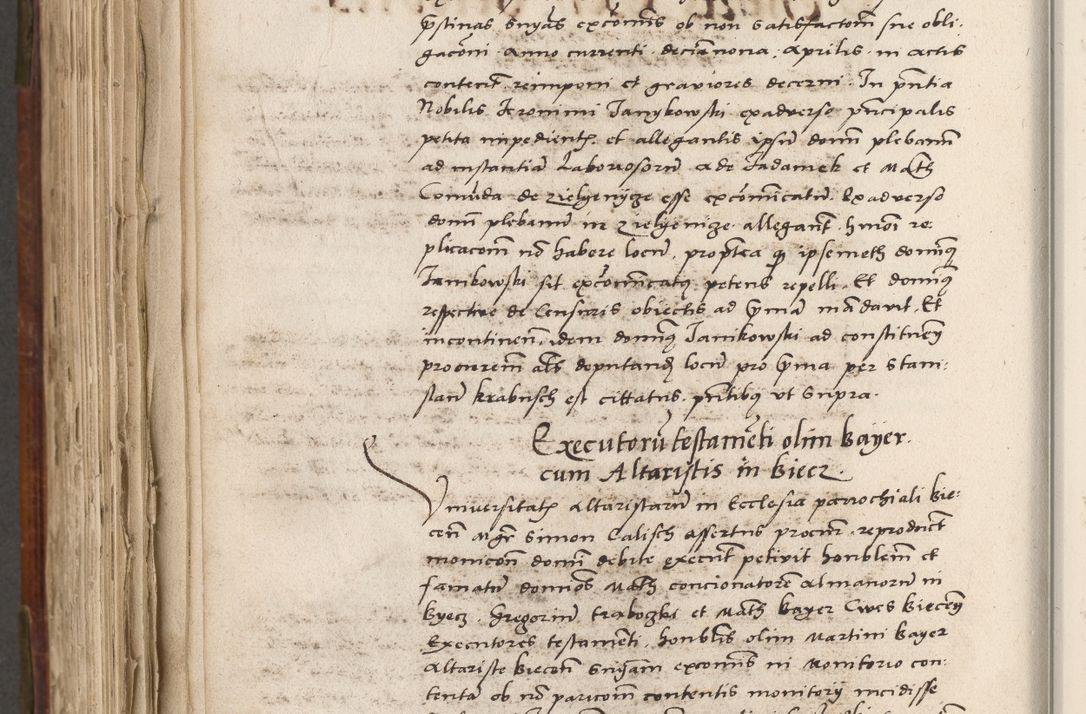 p̄stinas Snỹas excōmīs ob non satisfactom̄ sue obli⸗
gacōni Anno currenti decimanona Aprilis in actis
content̄ reimponi et graviores decerni. In pn̄tia
Nobilis Ieronimi Ianykowski ex adverso pn̄cipalis
petita impedient̄ et allegantis ipsū dom̄ plebanū
ad instantiā Laboriosorū de Iadamek et Math̄
de zielyenycze esse excōmicatū. Ex adverso
dom̄ plebanū in zielyenicze allegant̄ hmōi re⸗
plicacom̄ nō habere locū, propterea q ipsemeth domīq
Ianikowski sit excōmicatq petens repelli. Et domīq
respective de Censuris obiectis ad p̄ma mādavit. Et
incontinen̄. idem domīq Ianikowski ad constituen̄
procurem̄ als deputand locū pro p̄ma per Stani⸗
slaū krabusch est cittatus. pn̄tibq ut supra.
Executorū testamēti olim Bayer.
cum Altaristis in Biecz.
Vniversitatis Altaristarū in Ecclesia parrochiali Bie⸗
cen̄ Mgr̄ Simon Calisch assertus procur̄. reproduct
monicōn dom̄ debite execut̄ petivit honblem̄ et
famatū domīos Math̄ concionatorē Almanorū in
Byecz. Gregoriū et Math̄ Bayer Cives Biecen̄
Executores testamēti. honblis olim Martini Bayer
Altariste Biecen̄ Snỹam excomīs in Monitorio con⸗
tenta ob nō paricom̄ contentis monitorij incidisse